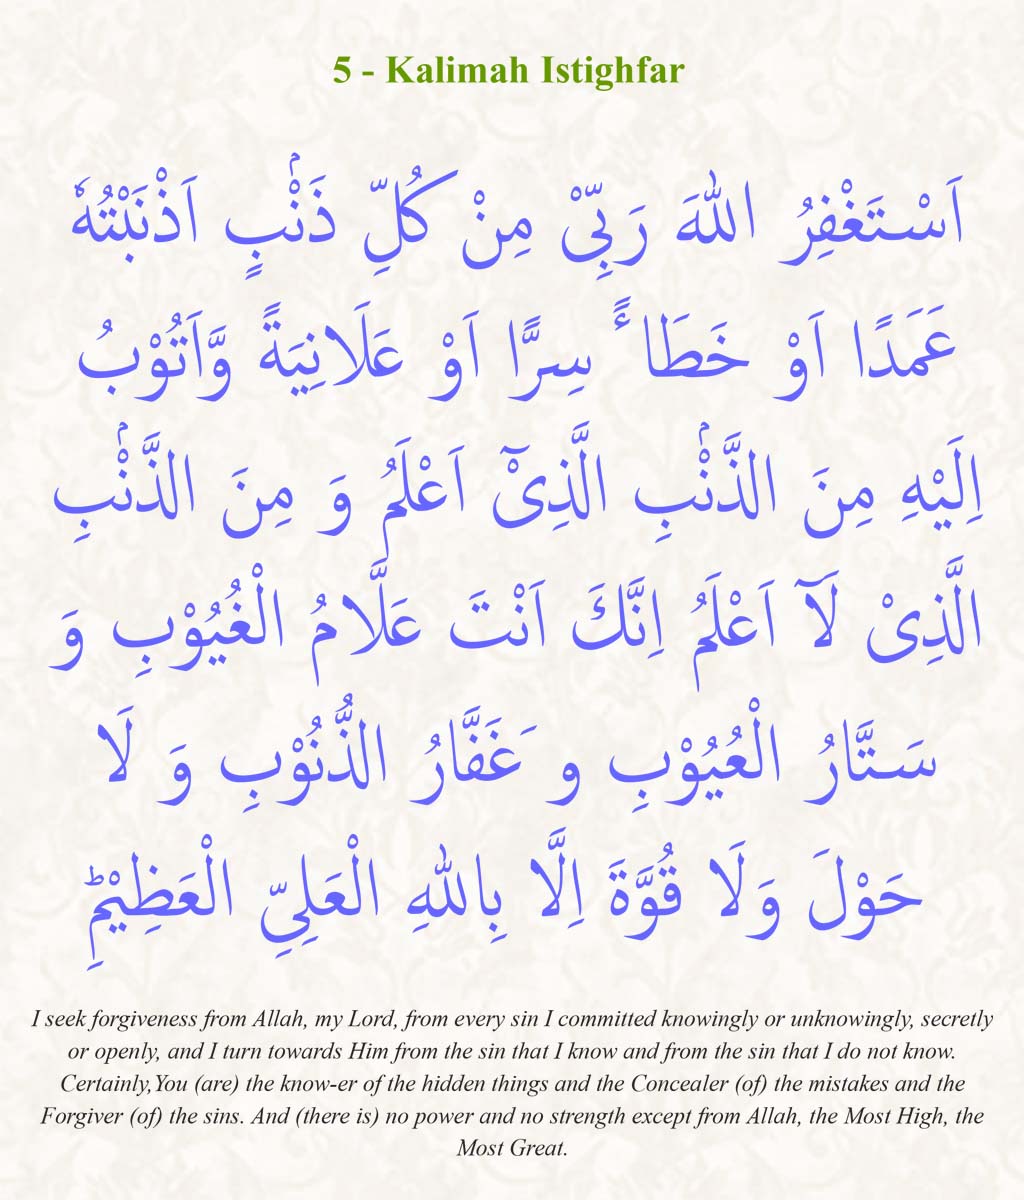 5 - Kalimah Istighfar
اَسْتَغْفِرُ اللهَ رَبِّىْ مِنْ كُلِّ ذَنْۢبٍ اَذْنَبْتُهٗ
عَمَدًا اَوْ خَطَا ءً سِرًّا اَوْ عَلَانِيَةً وَّاَتُوْبُ
اِلَيْهِ مِنَ الذَّنْۢبِ الَّذِىْٓ اَعْلَمُ وَ مِنَ الذَّنْۢبِ
الَّذِىْ لَآ اَعْلَمُ اِنَّكَ اَنْتَ عَلَّامُ الْغُيُوْبِ وَ
سَتَّارُ الْعُيُوْبِ و َغَفَّارُ الذُّنُوْبِ وَ لَا
حَوْلَ وَلَا قُوَّةَ اِلَّا بِاللهِ الْعَلِىِّ الْعَظِيْمِؕ
I seek forgiveness from Allah, my Lord, from every sin I committed knowingly or unknowingly, secretly
or openly, and I turn towards Him from the sin that I know and from the sin that I do not know.
Certainly,You (are) the know-er of the hidden things and the Concealer (of) the mistakes and the
Forgiver (of) the sins. And (there is) no power and no strength except from Allah, the Most High, the
Most Great.